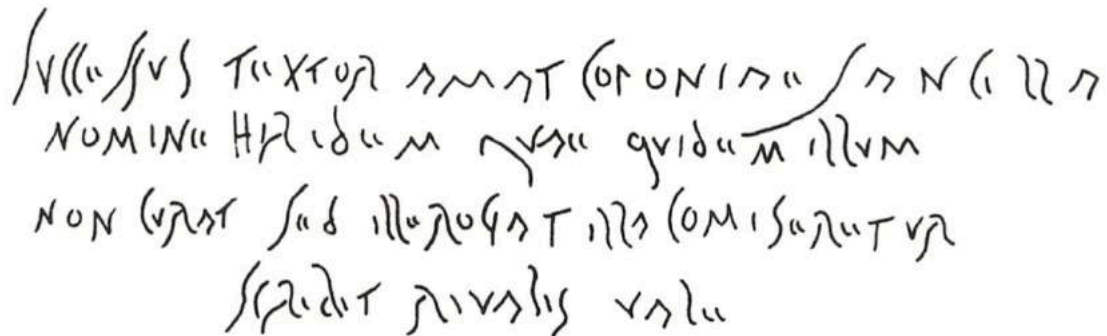 Successus textor amat coponiaes ancilla
nomine Hiridem quae quidem illum
non curat sed ille rogat illa comiseretur
scribit rivalis vale